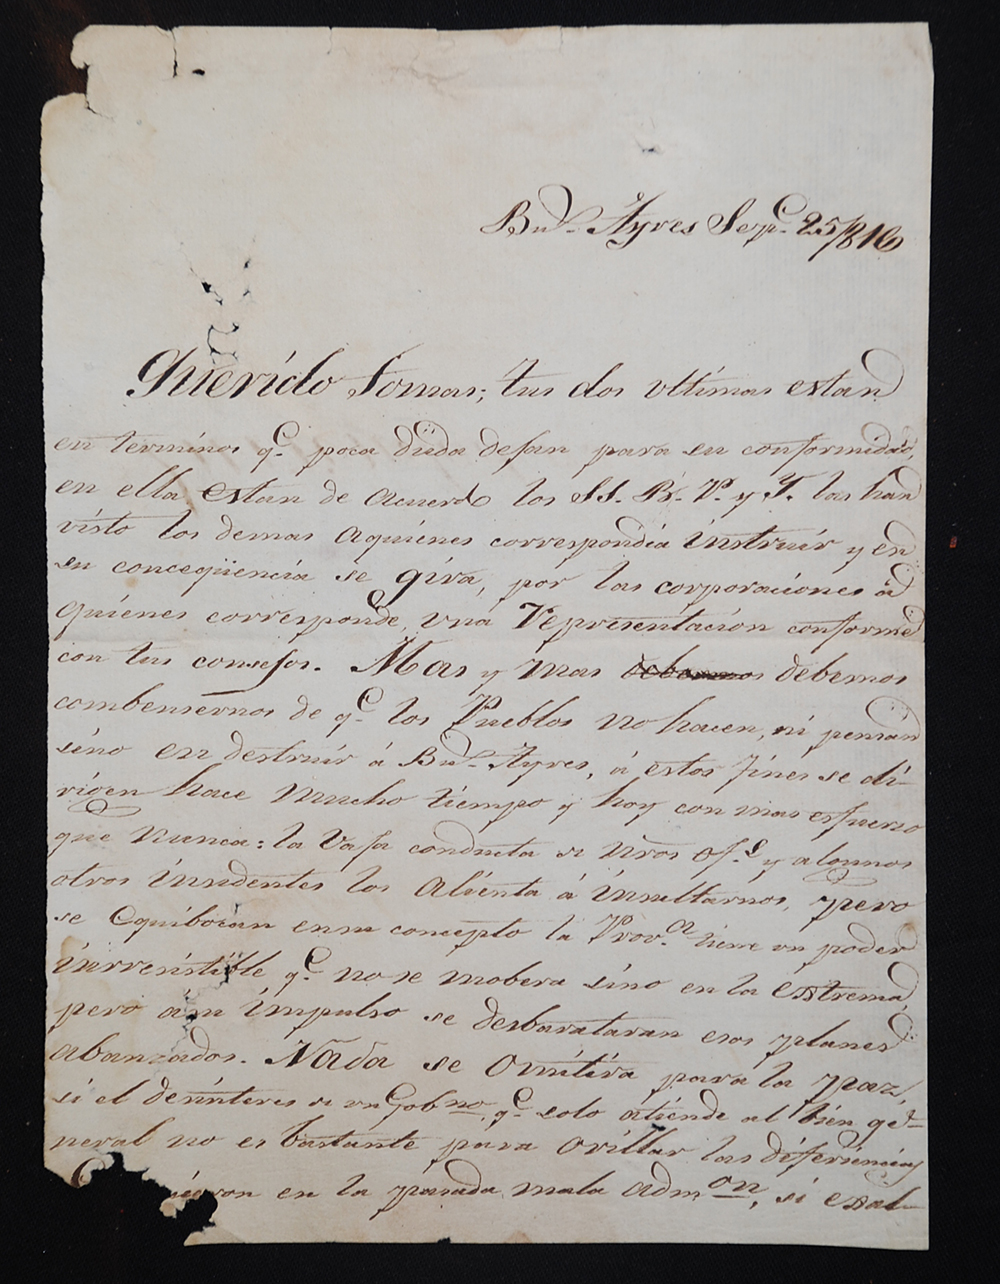 Bu.s Ayres Sep.e 25/816
Querido Tomas; tus dos ultimas estan
en terminos q.e poca duda dejan para su conformidad,
en ella estan de acuerdo los SS. B. P. y T. las han
visto los demas aquienes correspondia instruir y en
su conceqüencia se gira, por las corporaciones á
quienes corresponde, una Representacion conforme
con tus consejos. Mas y mas debemos debemos
combensernos de q.e los Pueblos no hacen, ni pensan
sino en destruir á Bu.s Ayres, á estos fines se di-
rigen hace mucho tiempo y hoy con mas esfuerzo
que nunca: la baja conducta de nros of.s y algunos
otros insidentes los alienta á insultarnos, pero
se equibocan en su concepto la Prov.a tiene un poder
irresistible q.e no se mobera sino en la extrema,
pero á su impulso se desbarataran esos planes
abanzados. Nada se omitira para la paz,
si el desinteres de un Gob.no q.e solo atiende al bien ge-
neral no es bastante para orillar las diferiencias
en la pasada mala adm.on, si exal-